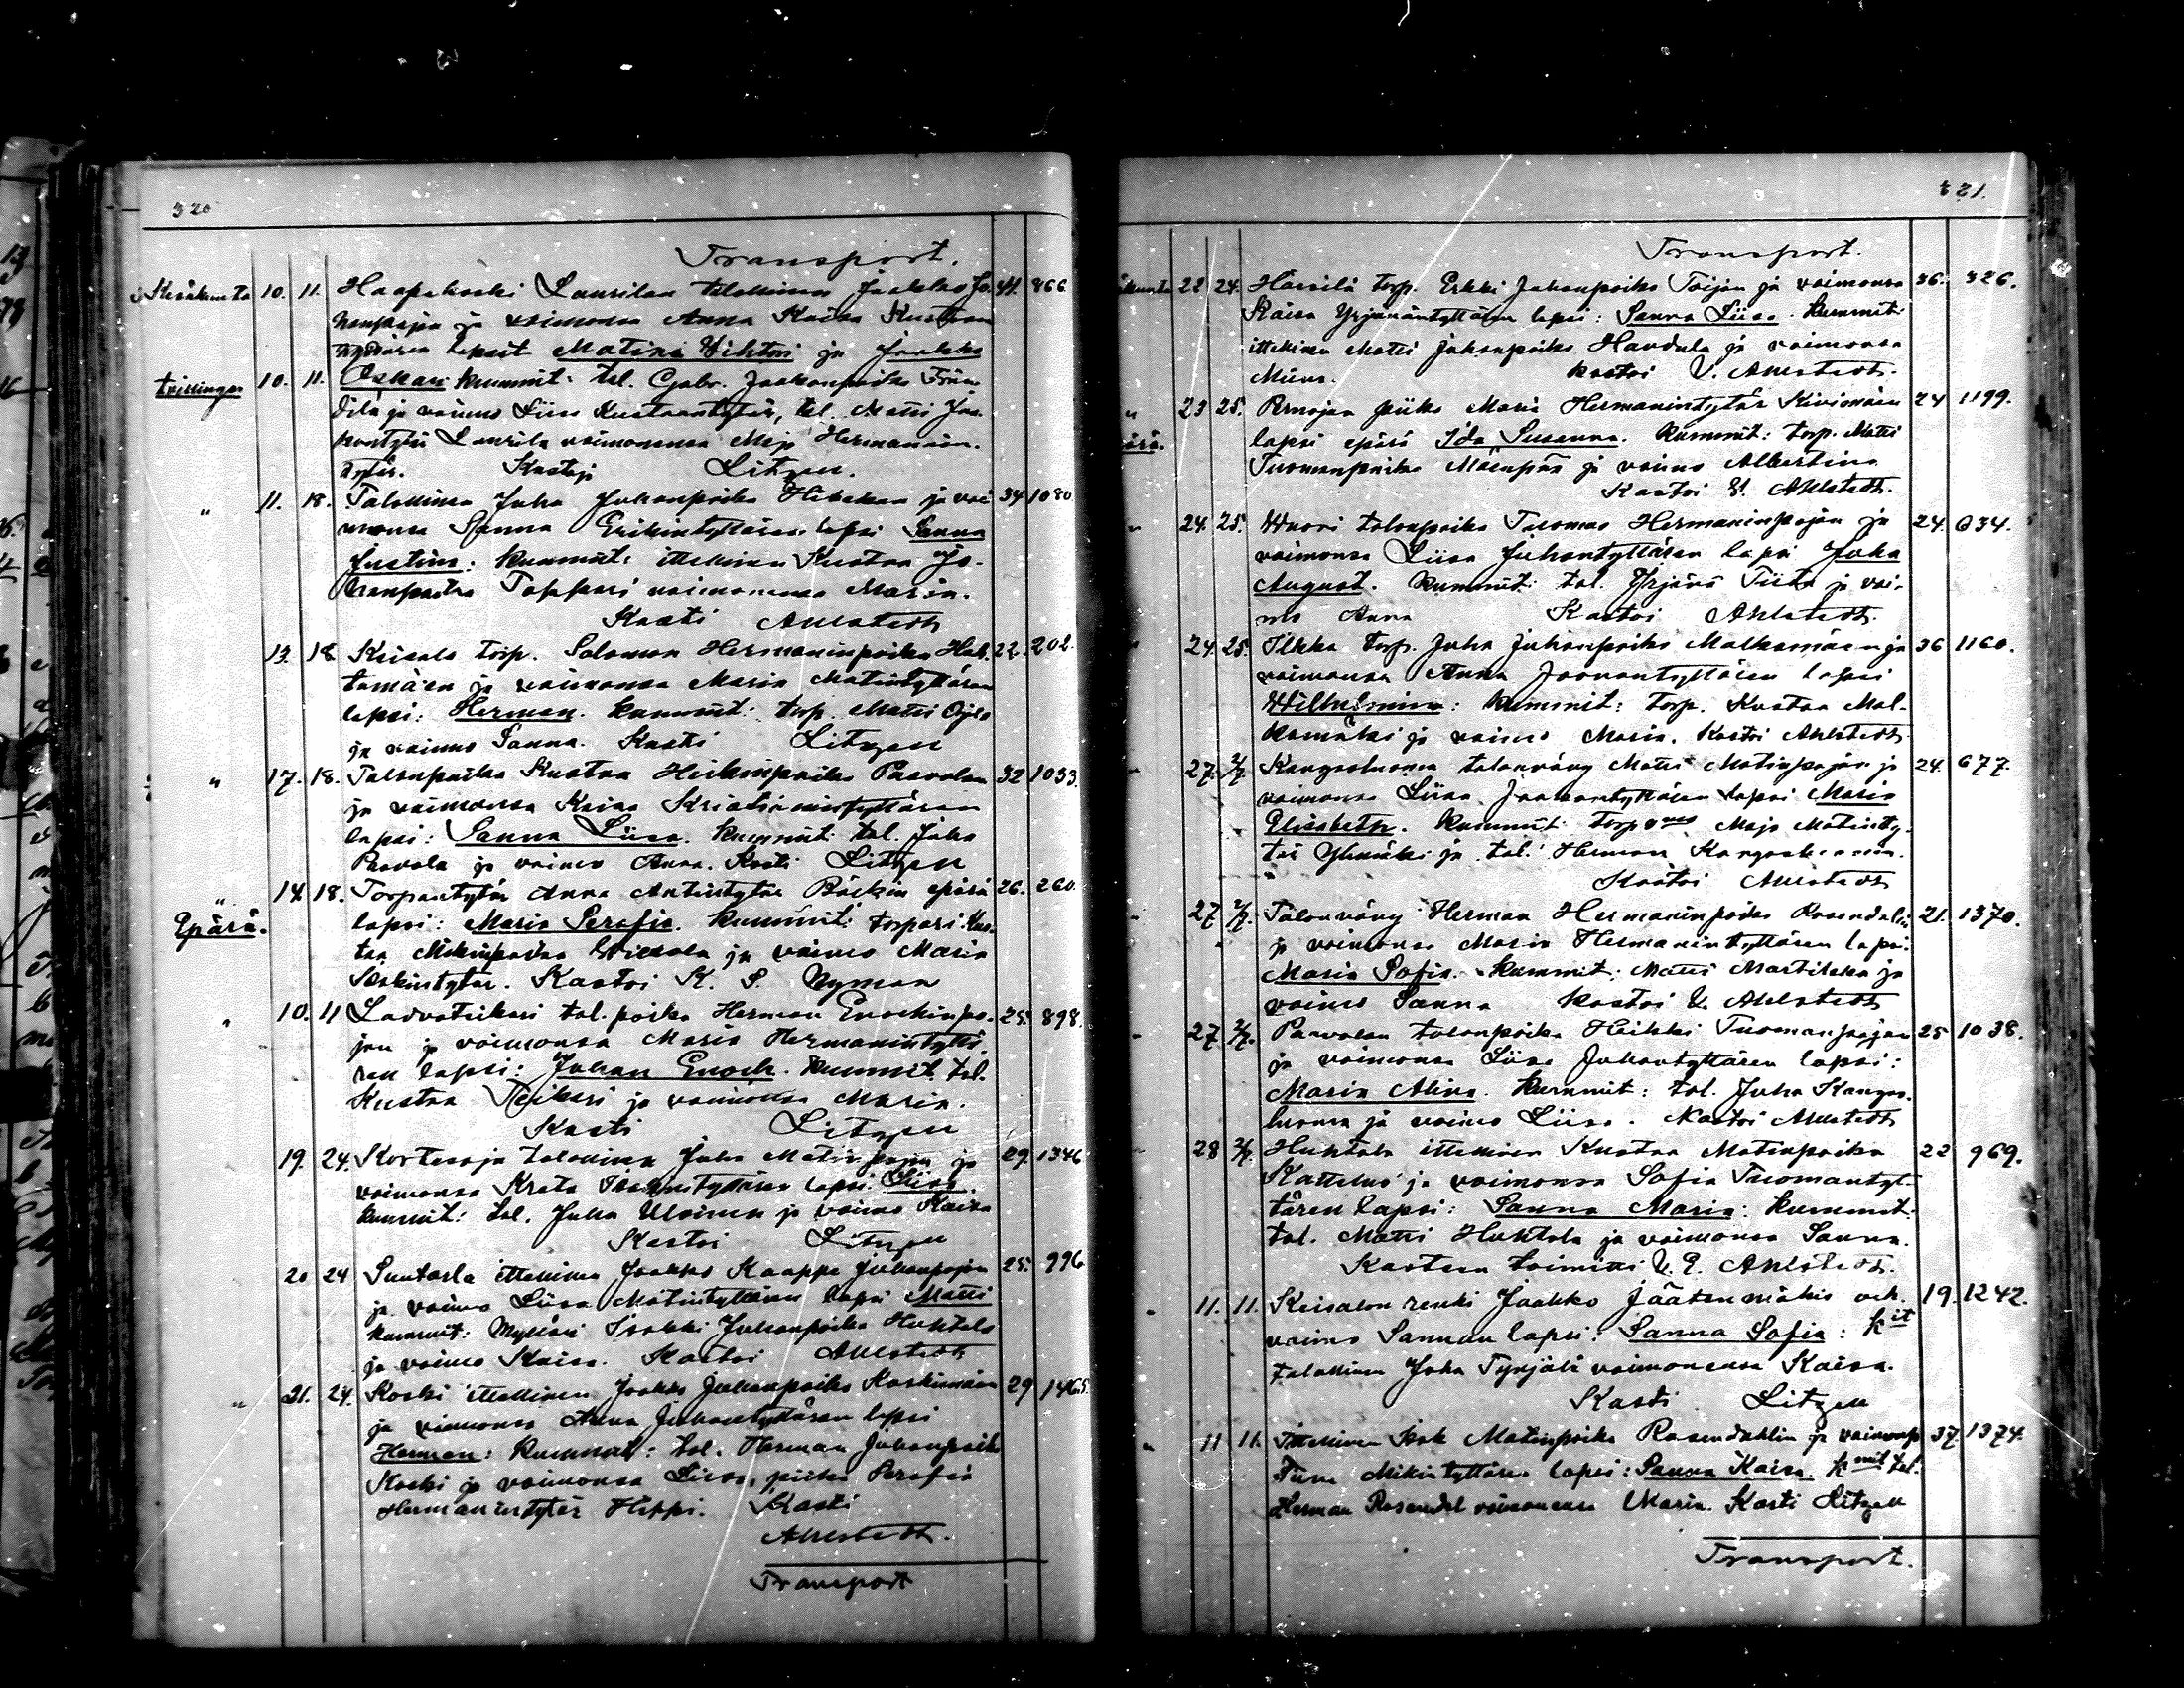 320
Transport.
Kesäkuuta 10. 11. Haapakoski Laurilan talollinen Jaakko Ju- 41. 866
hanpojan ja vaimonsa Anna Kaisa Kustaan
tyttären lapset Matina Vihtori ja Jaakko
tvillingar 10. 11. Oskari kummit: tal. Gabr. Jaakonpoika
ja vaimo Liisa Kustaantytär, tal. Matti
Laurila vaimonensa Maja Hermanin-
tytär. Kastoi Litzen.
" 11. 18. Talollinen Juha Juhanpoika ja vai 34 1080
monsa Sanna Erikintyttären lapsi Sanna
Justina: kummit: itellinen Kustaa Jo-
hanpoika Toppari vaimonensa Maria.
Kasti Ahlstedt
13. 18 Keisala torp. Salomon Hermaninpoika Hak- 22. 202.
tamäen ja vaimonsa Maria Matintyttären
lapsi: Herman. kummit: torp. Matti
ja vaimo Sanna. Kasti Litzen
" 17. 18. Talonpoika Kustaa Heikinpoika Paavolan 32 1033.
ja vaimonsa Kaisa
lapsi: Sanna Liisa. kummit: tal. Juha
Paavola ja vaimo Anna. Kasti Litzen
" 14. 18. Torpantytär Anna Antintytär Bäckin epärä 26. 260.
Epärä. lapsi: Maria Serafia. kummit: torpari Kus-
taa ja vaimo Maria
Kastoi K. S. Nyman
" 10. 11 Ladvateikari tal. poika Herman Enockinpo- 25. 898.
jan ja vaimonsa Maria Hermanintyttä-
ren lapsi: Juhan Enock. kummit. tal.
Kustaa Teikari ja vaimonsa Maria.
Kasti Litzen
19. 24. Kortesoja talollinen Juha Matinpojan ja 29. 1346
vaimonsa Kreta lapsi: Liisa.
kummit: tal. Juha Uloinen ja vaimo Kaisa
Kastoi Litzen
20 24 Suutarla itellinen Jaakko Kaappa Juhanpojan 25. 996
ja vaimo Liisa Matintyttären lapsi Matti
kummit: Mylläri Juhanpoika Huhtala
ja vaimo Kaisa. Kastoi Ahlstedt
" 21. 24. Koski itellinen Jaakko Juhanpoika Koskimäen 29 1465.
ja vaimonsa Anna Juhantyttären lapsi
Herman: kummit: tal. Herman Juhanpoik
Koski ja vaimonsa Liisa, piika Serafia
Hermanintytär Hippi. Kasti
Ahlstedt.
Transport
321.
Transport.
22 24. torp. Erkki Juhanpoika Töijan ja vaimonsa 36. 326.
Kaisa Yrjänäntyttären lapsi: Sanna Liisa. kummit:
itellinen Matti Juhanpoika Haudala ja vaimonsa
Miina. kastoi V. Ahlstedt.
" 23 25. piika Maria Hermanintytär Kivimäen 24 1199.
lapsi epärä Ida Susanna. kummit: torp. Matti
Tuomanpoika Mäenpää ja vaimo Albertina
Kastoi V. Ahlstedt.
" 24. 25. Wuori talonpoika Tuomas Hermaninpojan ja 24. 634.
vaimonsa Liisa Juhantyttären lapsi Juha
August. kummit: tal. Yrjänä Tiito ja vai-
mo Anna Kastoi Ahlstedt.
" 24. 25. Ilkka torp. Juha Juhanpoika Malkamäen ja 36 1160.
vaimonsa Anna Joonantyttären lapsi
Wilhelmina: kummit: torp. Kustaa Mal-
kamäki ja vaimo Maria. Kastoi Ahlstedt
" 27. 2/7. Kangasluoma talonväng Matti Matinpojan ja 24. 677.
vaimonsa Liisa lapsi Maria
Elisabeth. kummit: Maja Matinty-
tär Ylimäki ja tal. Herman Kangasluoma.
Kastoi Ahlstedt
" 27 2/7. Talonväng Herman Hermaninpoika Rosendalin 21. 1370.
ja vaimonsa Maria Hermanintyttären lapsi:
Maria Sofia. kummit: Matti Martikka ja
vaimo Sanna Kastoi V. Ahlstedt
" 27 2/7. Paavolan talonpoika Heikki Tuomanpojan 25 1038.
ja vaimonsa Liisa Juhantyttären lapsi:
Maria Alina. kummit: tal. Juha Kangas-
luoma ja vaimo Liisa. Kastoi Ahlstedt
" 28 2/7. Huhtala itellinen Kustaa Matinpoika 22 969.
Kattelus ja vaimonsa Sofia Tuomantyt-
tären lapsi: Sanna Maria: kummit:
tal. Matti Huhtala ja vaimonsa Sanna.
Kasteen toimitti V. E. Ahlstedt.
" 11. 11. Keisalan renki Jaakko Jäätenmäkis och. 19. 1242.
vaimo Sannan lapsi: Sanna Sofia: kit
talollinen Juha Tyrjälä vaimonensa Kaisa.
Kasti Litzen
" 11 11. Itellinen Isak Matinpoika Rosendahlin ja vaimonsa 37. 1374.
Tiina Mikintyttären lapsi: Sanna Kaisa. kmit tal.
Herman Rosendal vaimonensa Maria. Kasti Litzen
Transport.